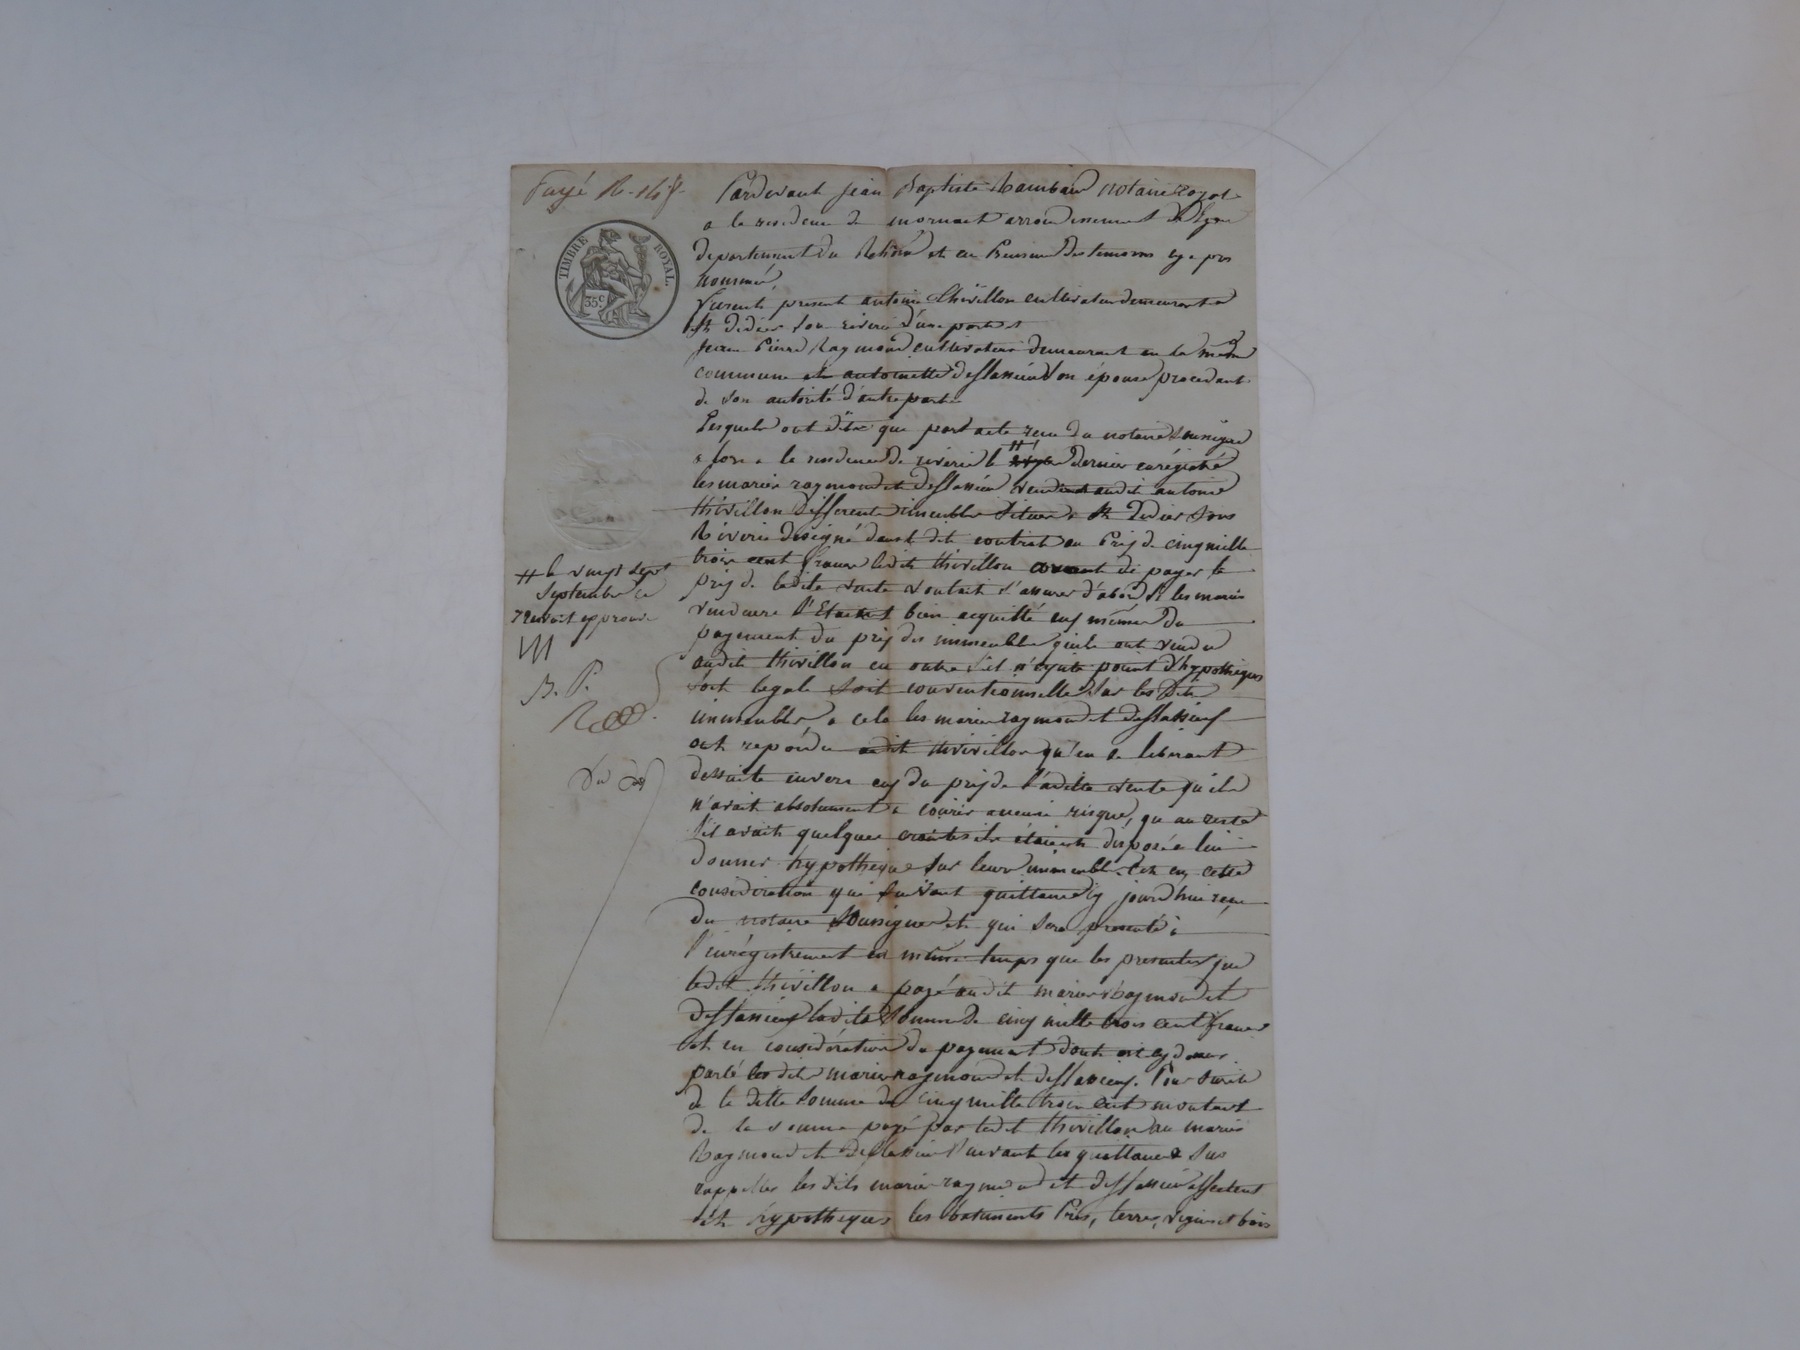 Payé
Pardevant jean Baptiste Rambaud notaire royal
a la residence de mornant arrondissement de Lyon
TIMBRE ROYAL.
35 c.
departement du Rhône et en Presence des temoins cy a pres
nommé,
furent present antoine thivillon cultivateur demeurant a
St didier sou riverie d'une part et
Jean Pierre Raymond cultivateur demeurant en la meme
commune et antoinette dessassieu son épouse procedant
de son autorité d'autre part
Lesquels ont dit que par acte recu du notaire soussigné
a la residence de riverie le dernier enrégistré
les mariés raymond et dessassieu vendirent audit antoine
thivillon different immeuble situer a St Didier sous
Riverie designé dans le dit contrat au Prix de cinq mille
trois cent francs ledit thivillon avant de payer le
# le vingt sept
septembre
renvoit approuvé
prix de ladite vente voulait s'assurer d'abord si les mariés
vendeurs s'etaient bien acquitté eux même du
payement du prix des immeuble qu'ils ont vendu
audit thivillon en outre s'il n'éxiste point d'hypothèques
soit legale soit conventionnelle sur les dits
B. P.
immeuble a cela les mariés raymond et dessassieux
ont repondu audit thivillon qu'en se liberant
de suite envers eux du prix de ladite vente qu'il
n'avait absolument a courir aucune risque, qu au reste
s'il avait quelque craintes ils étaient disposé a lui
donner hypotheque sur leurs immeuble. c'est en cette
consideration que suivant quittance cy jourd'hui recu
du notaire soussigné et qui sera presenté à
l'enrégistrement en même temps que les presentes que
ledit thivillon a payé audit mariés Raymond et
dessassieux ladite somme de cinq mille trois cent francs
et en considération du payement dont est cy dessus
parlé les dits mariés raymond et dessassieux. Pour sureté
de la ditte somme de cinq mille trois cent montant
de la somme payé par ledit thivillon au mariés
Raymond et Dessassieu suivant la quittance sus
rappellée les dits mariés raymond et dessassieu affectent
et hypotheques les batiments Prés, terres, vignes et bois